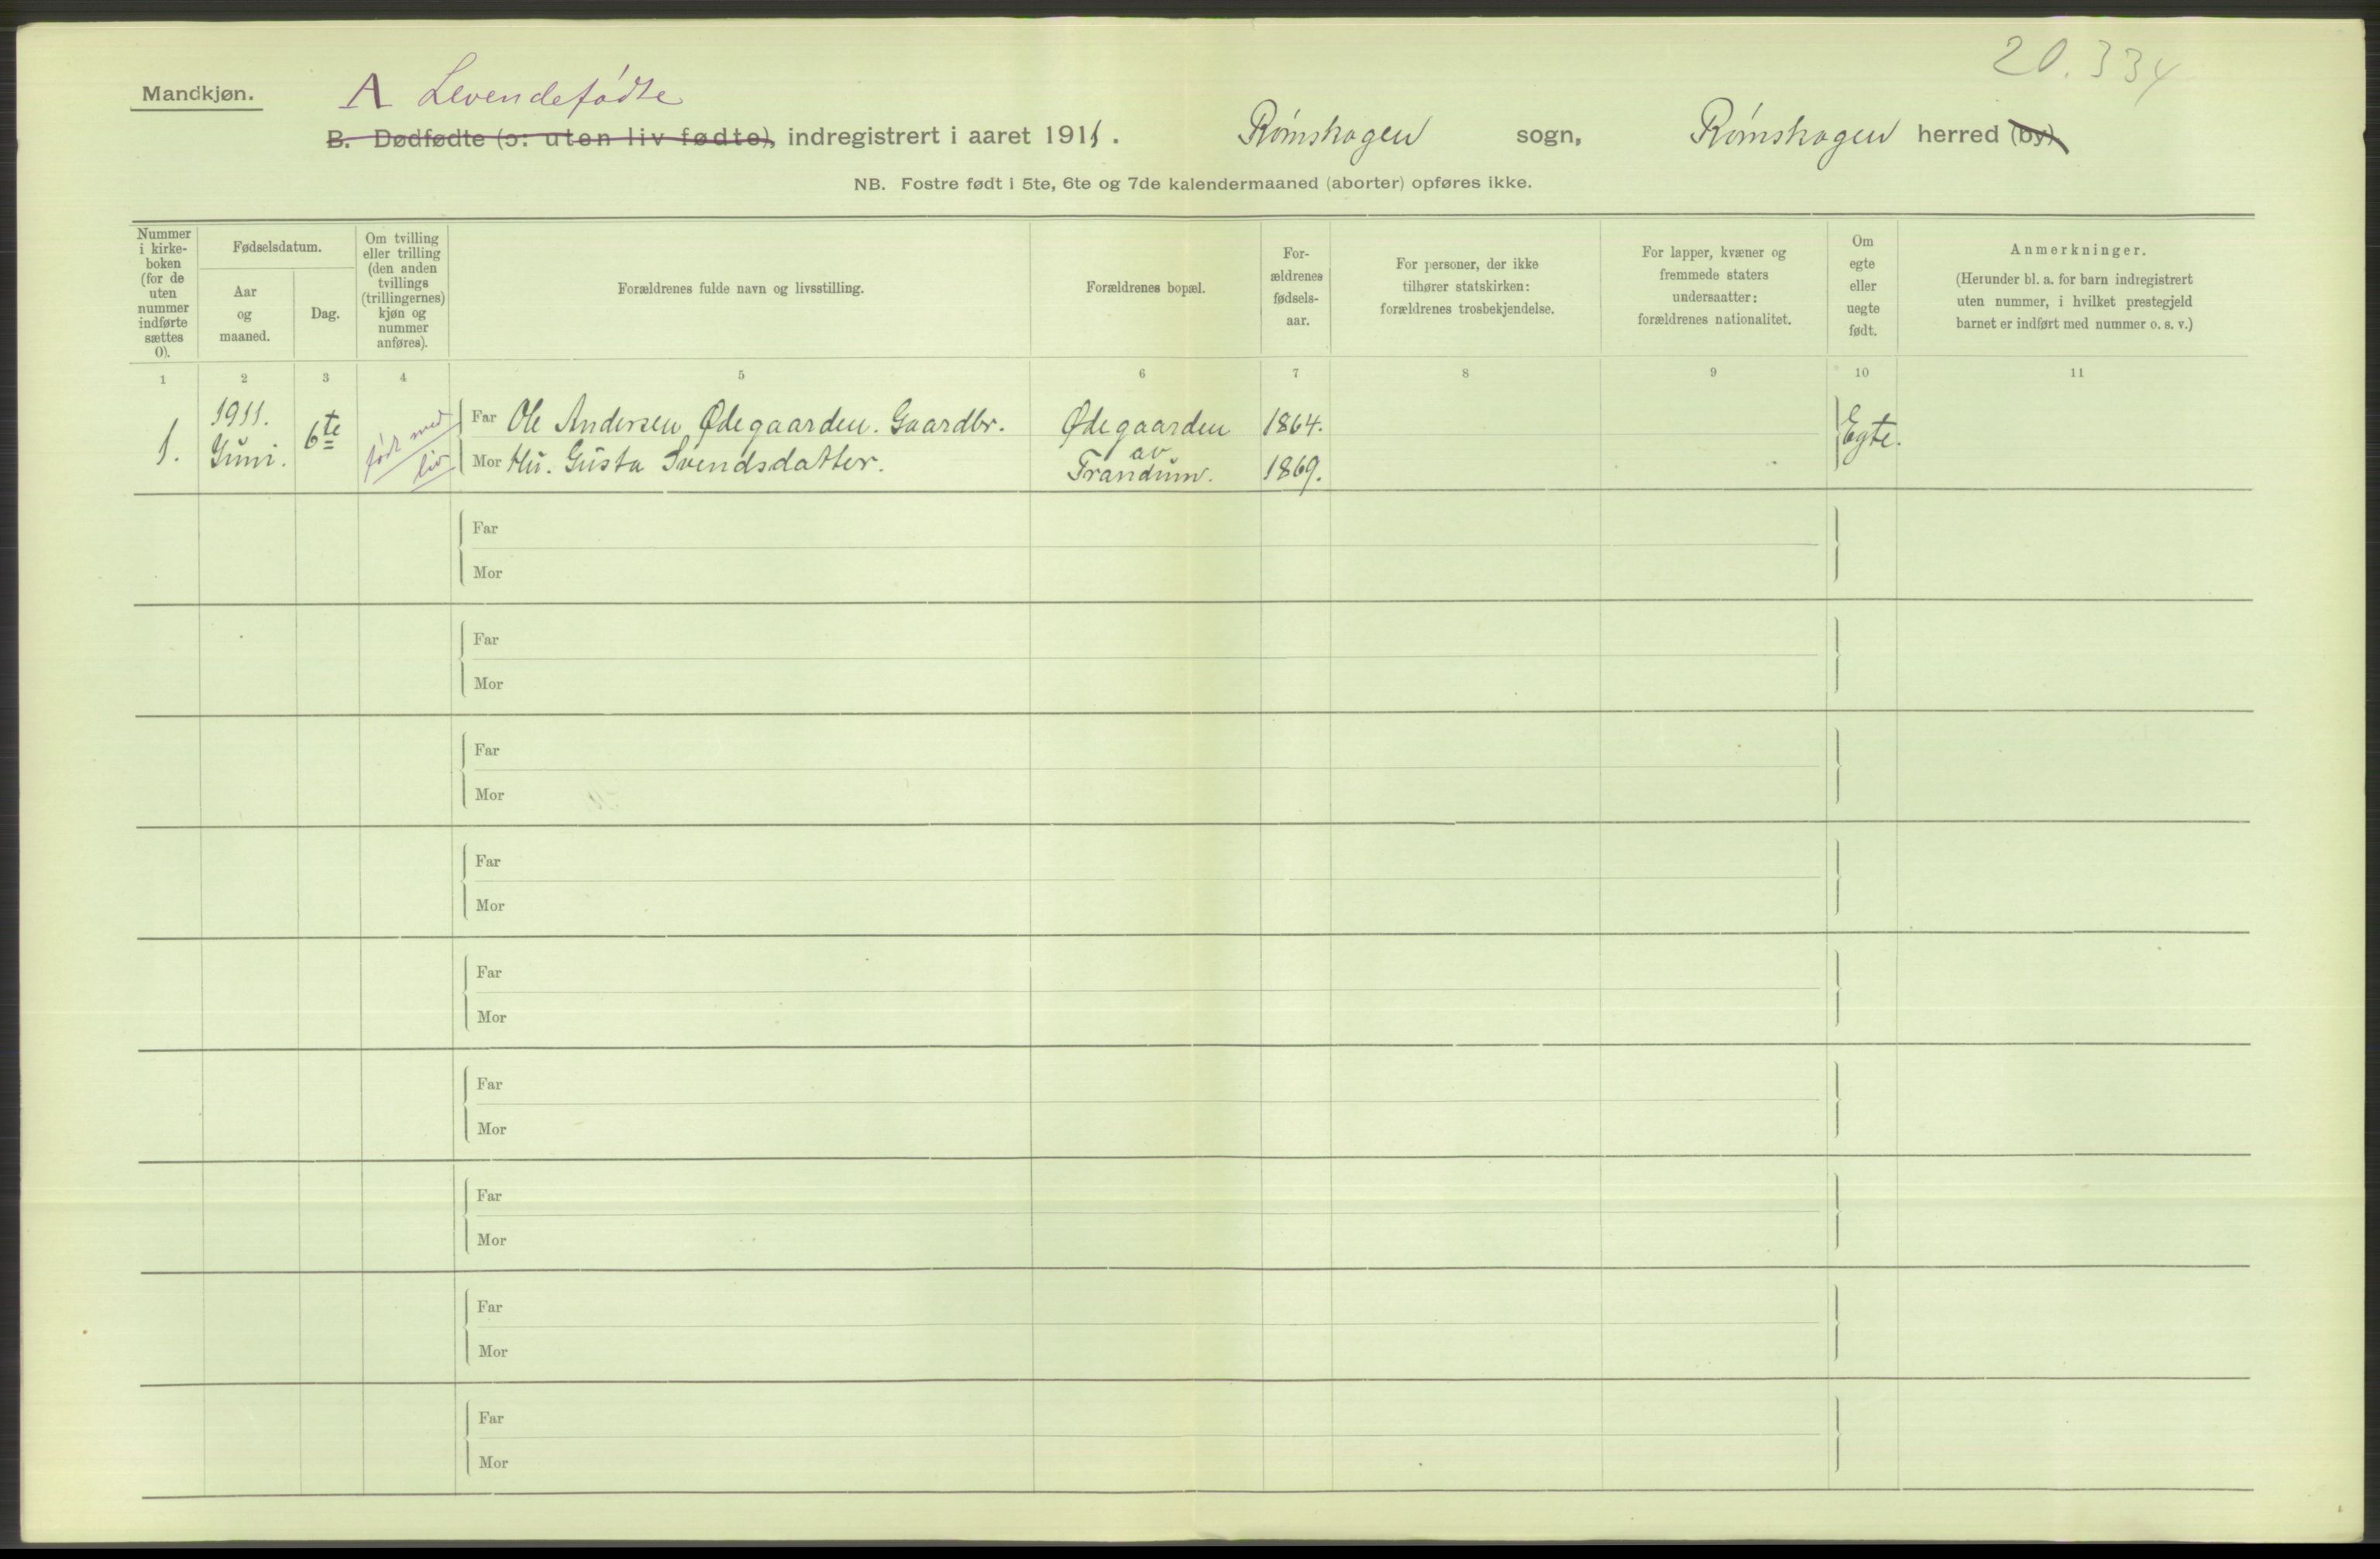 20.334
Mandkjøn.
A Levendefødte
B. Dødfødte (ɔ: uten liv fødte), indregistrert i aaret 1911. Rømskogen sogn, Rømskogen herred (by).
NB. Fostre født i 5te, 6te og 7de kalendermaaned (aborter) opføres ikke.
Nummer
i kirke-
boken
(for de
uten
nummer
indførte
sættes
0).
Fødselsdatum.
Aar
og
maaned.
Dag.
Om tvilling
eller trilling
(den anden
tvillings
(trillingernes)
kjøn og
nummer
anføres).
Forældrenes fulde navn og livsstilling.
Forældrenes bopæl.
For-
ældrenes
fødsels-
aar.
For personer, der ikke
tilhører statskirken:
forældrenes trosbekjendelse.
For lapper, kvæner og
fremmede staters
undersaatter:
forældrenes nationalitet.
Om
egte
eller
uegte
født.
Anmerkninger.
(Herunder bl. a. for barn indregistrert
uten nummer, i hvilket prestegjeld
barnet er indført med nummer o. s. v.)
1 2 3 4 5 6 7 8 9 10 11
1.
1911.
Juni.
6te
født med
liv
Far Ole Andersen Ødegaarden. Gaardbr.
Mor Hu. Gusta Svendsdatter.
Ødegaarden
av
Trandum.
1864.
1869.
Egte.
Far
Mor
Far
Mor
Far
Mor
Far
Mor
Far
Mor
Far
Mor
Far
Mor
Far
Mor
Far
Mor